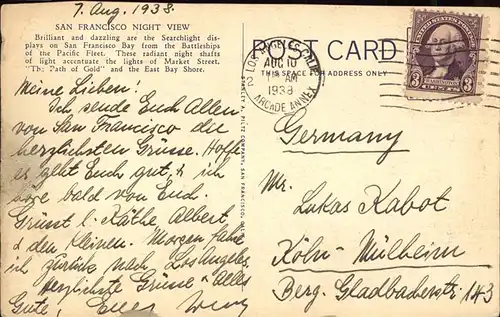 7. Aug. 1938.
SAN FRANCISCO NIGHT VIEW
Brilliant and dazzling are the Searchlight dis-
plays on San Francisco Bay from the Battleships
of the Pacific Fleet. These radiant night shafts
of light accentuate the lights of Market Street.
"The Path of Gold" and the East Bay Shore.
Meine Lieben!
Ich sende Euch Allen
von San Francisco die
herzlichsten Grüsse. Hoffe
es geht Euch gut, & ich
höre bald von Euch
Grüsst l. Käthe Albert
& den Kleinen. Morgen fahre
ich zurück nach Los Angeles
Herzlichste Grüsse & Alles
Gute, Euer
POST CARD
THIS SPACE FOR ADDRESS ONLY
LOS ANGELES, CALIF.
AUG 10
AM
1938
ARCADE ANNEX
UNITED STATES POSTAGE
3 WASHINGTON 3
STANLEY A. PILTZ COMPANY, SAN FRANCISCO,
Germany
Mr.
Lukas Kabot
Köln-Mülheim
Berg. Gladbacherstr. 143